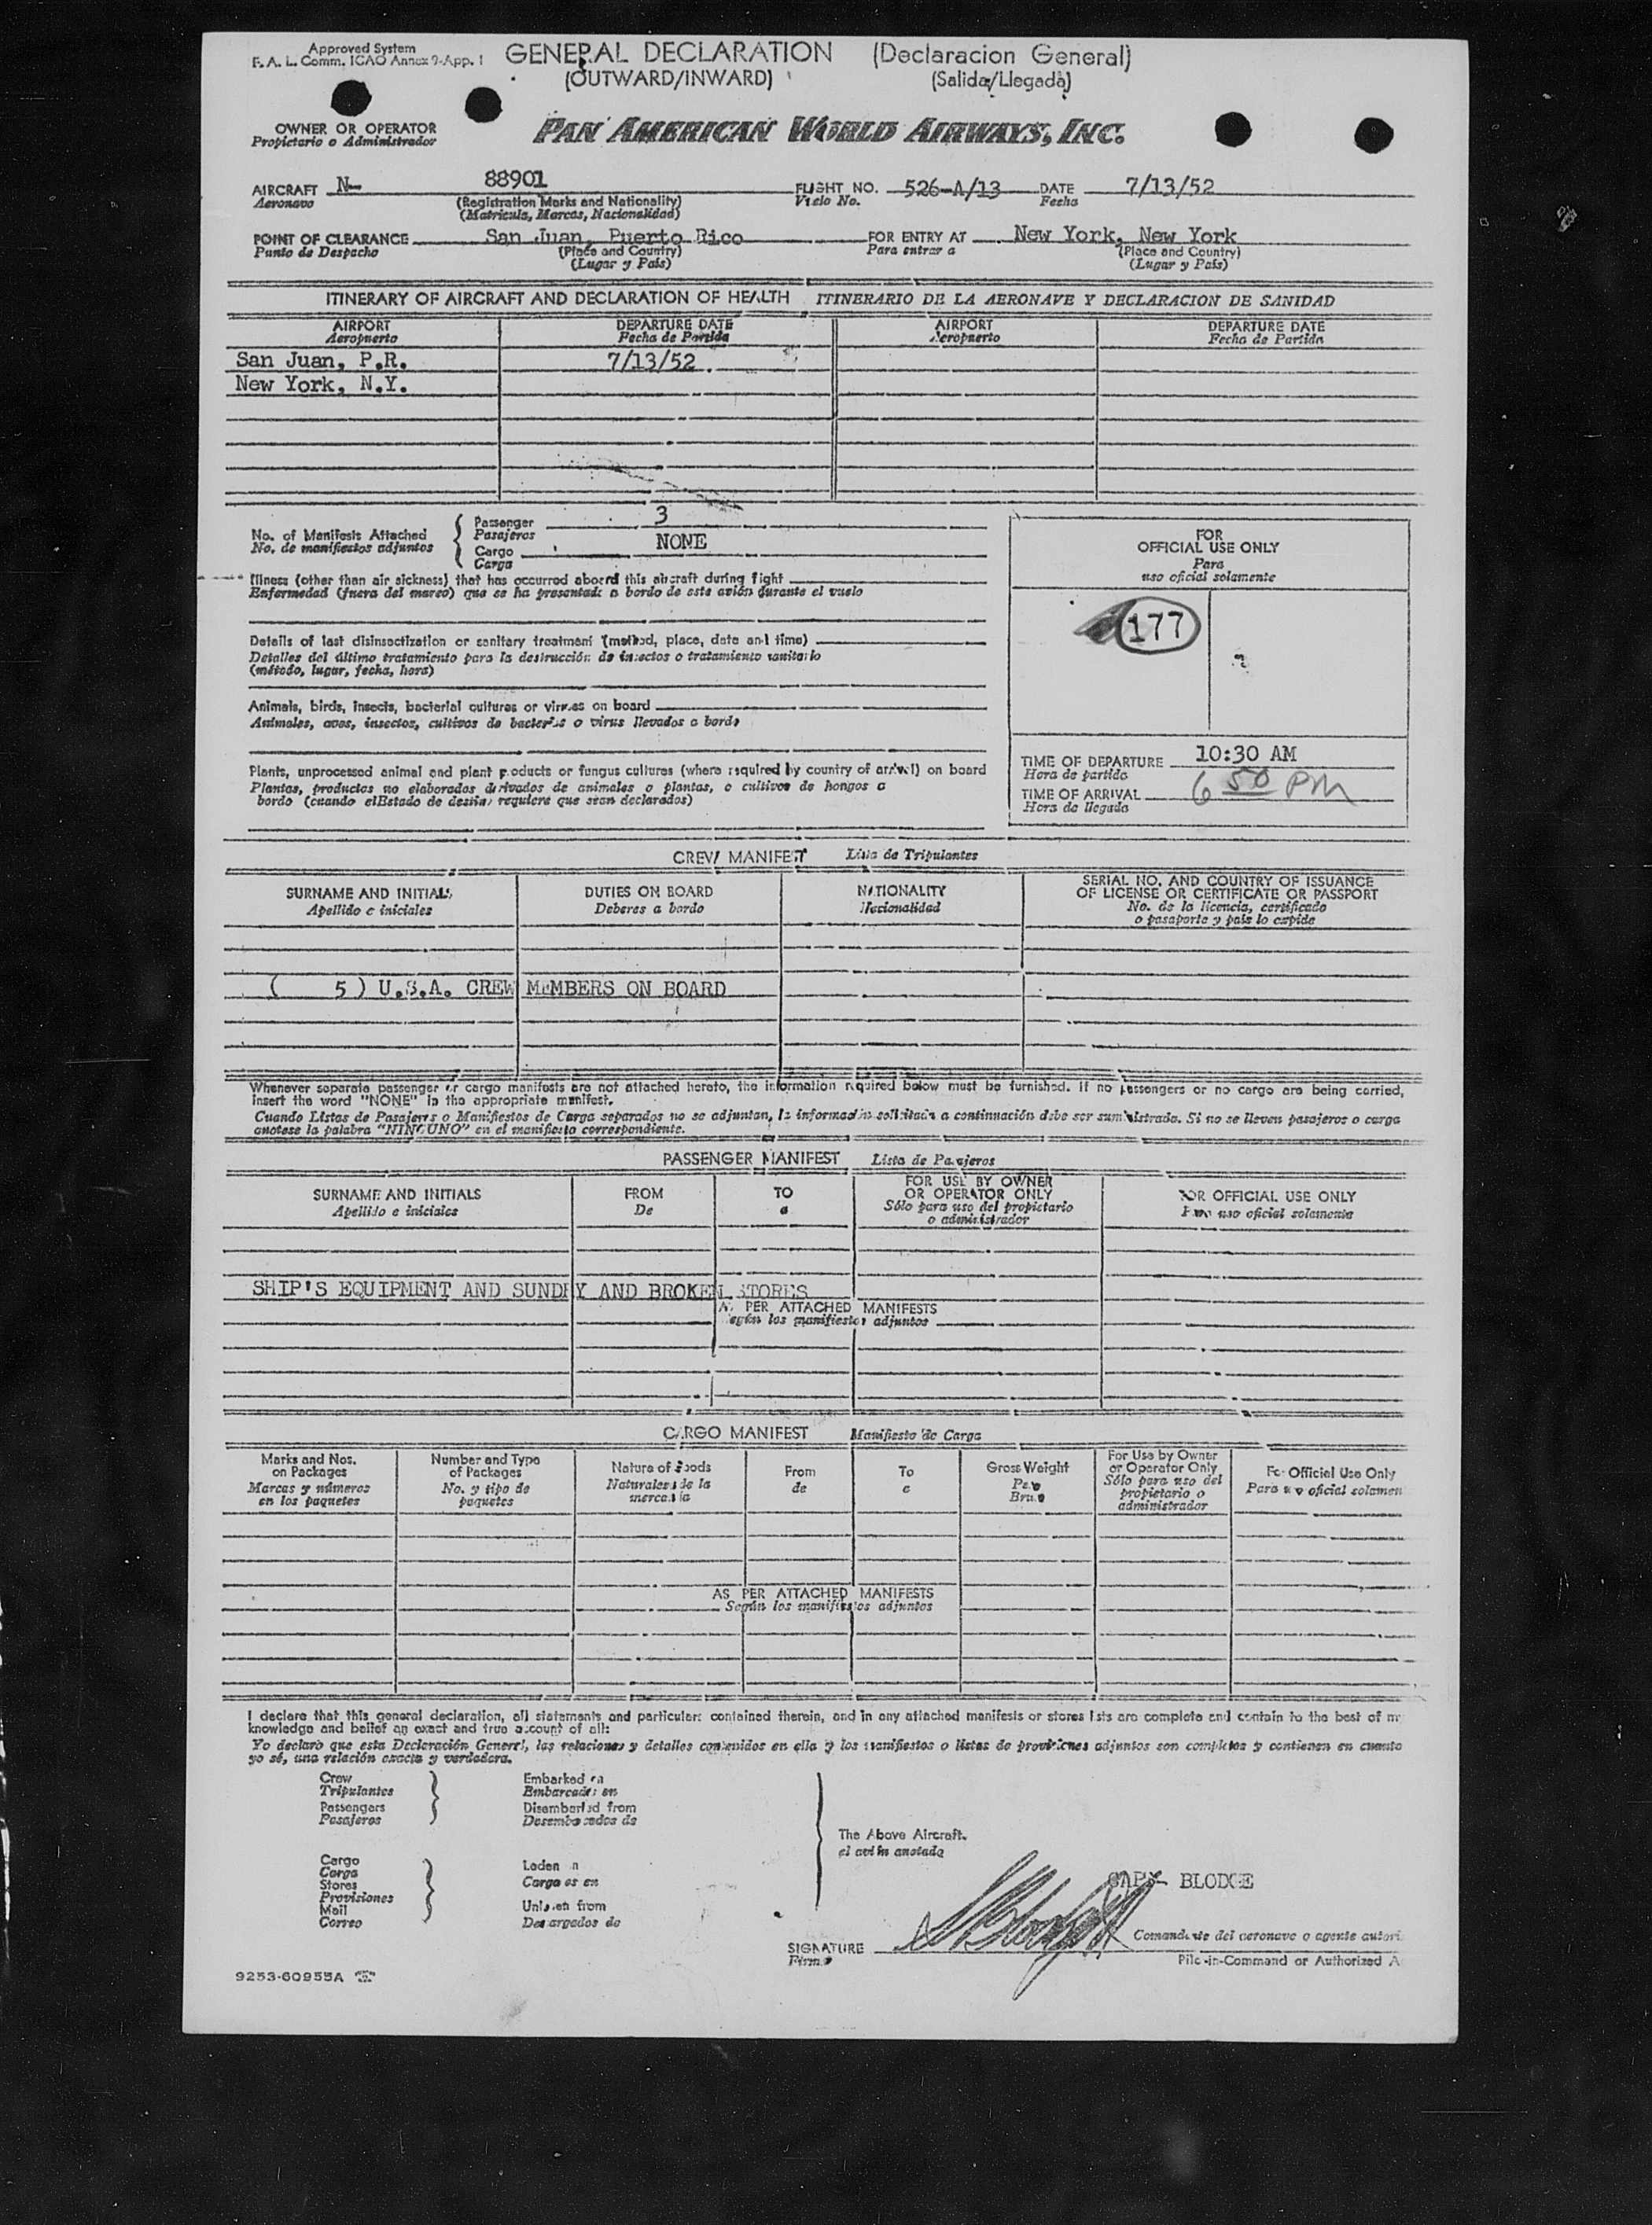 Approved System
F. A. L. Comm. ICAO Annex 9-App. 1
GENERAL DECLARATION (Declaracion General)
(OUTWARD/INWARD) (Salida/Llegada)
OWNER OR OPERATOR
Propietario o Administrador
PAN AMERICAN WORLD AIRWAYS, INC.
AIRCRAFT N- 88901 FLIGHT NO. 526-A/13 DATE 7/13/52
Aeronave (Registration Marks and Nationality) Vuelo No. Fecha
(Matricula, Marcas, Nacionalidad)
POINT OF CLEARANCE San Juan, Puerto Rico FOR ENTRY AT New York, New York
Punto de Despacho (Place and Country) Para entrar a (Place and Country)
(Lugar y País) (Lugar y País)
ITINERARY OF AIRCRAFT AND DECLARATION OF HEALTH ITINERARIO DE LA AERONAVE Y DECLARACION DE SANIDAD
AIRPORT DEPARTURE DATE AIRPORT DEPARTURE DATE
Aeropuerto Fecha de Partida Aeropuerto Fecha de Partida
San Juan, P.R. 7/13/52
New York, N.Y.
No. of Manifests Attached
No. de manifiestos adjuntos
Passenger 3
Pasajeros
Cargo NONE
Carga
Illness (other than air sickness) that has occurred aboard this aircraft during flight
Enfermedad (fuera del mareo) que se ha presentado a bordo de este avión durante el vuelo
Details of last disinsectization or sanitary treatment (method, place, date and time)
Detalles del último tratamiento para la destrucción de insectos o tratamiento sanitario
(método, lugar, fecha, hora)
Animals, birds, insects, bacterial cultures or viruses on board
Animales, aves, insectos, cultivos de bacterias o virus llevados a bordo
Plants, unprocessed animal and plant products or fungus cultures (where required by country of arrival) on board
Plantas, productos no elaborados derivados de animales o plantas, o cultivos de hongos a
bordo (cuando el Estado de destino requiere que sean declarados)
FOR
OFFICIAL USE ONLY
Para
uso oficial solamente
177
TIME OF DEPARTURE 10:30 AM
Hora de partida
TIME OF ARRIVAL 6 50 PM
Hora de llegada
CREW MANIFEST Lista de Tripulantes
SURNAME AND INITIALS DUTIES ON BOARD NATIONALITY SERIAL NO. AND COUNTRY OF ISSUANCE
OF LICENSE OR CERTIFICATE OR PASSPORT
Apellido e iniciales Deberes a bordo Nacionalidad No. de la licencia, certificado
o pasaporte y país lo expide
( 5 ) U.S.A. CREW MEMBERS ON BOARD
Whenever separate passenger or cargo manifests are not attached hereto, the information required below must be furnished. If no passengers or no cargo are being carried,
insert the word "NONE" in the appropriate manifest.
Cuando Listas de Pasajeros o Manifiestos de Carga separados no se adjuntan, la información solicitada a continuación debe ser suministrada. Si no se lleven pasajeros o carga
anotese la palabra "NINGUNO" en el manifiesto correspondiente.
PASSENGER MANIFEST Lista de Pasajeros
SURNAME AND INITIALS FROM TO FOR USE BY OWNER
OR OPERATOR ONLY FOR OFFICIAL USE ONLY
Apellido e iniciales De a Sólo para uso del propietario
o administrador Para uso oficial solamente
SHIP'S EQUIPMENT AND SUNDRY AND BROKEN STORES
AS PER ATTACHED MANIFESTS
Según los manifiestos adjuntos
CARGO MANIFEST Manifiesto de Carga
Marks and Nos.
on Packages
Marcas y números
en los paquetes
Number and Type
of Packages
No. y tipo de
paquetes
Nature of Goods
Naturaleza de la
mercancía
From
de
To
a
Gross Weight
Peso
Bruto
For Use by Owner
or Operator Only
Sólo para uso del
propietario o
administrador
For Official Use Only
Para uso oficial solamen
AS PER ATTACHED MANIFESTS
Según los manifiestos adjuntos
I declare that this general declaration, all statements and particulars contained therein, and in any attached manifests or stores lists are complete and contain to the best of my
knowledge and belief an exact and true account of all:
Yo declaro que esta Declaración General, las relaciones y detalles contenidos en ella y los manifiestos o listas de provisiones adjuntos son completos y contienen en cuanto
yo sé, una relación exacta y verdadera.
Crew
Tripulantes
Passengers
Pasajeros
Embarked on
Embarcados en
Disembarked from
Desembarcados de
Cargo
Carga
Stores
Provisiones
Mail
Correo
Laden on
Cargados en
Unladen from
Descargados de
The Above Aircraft.
el avión anotado
CAPT BLODGE
SIGNATURE
Firma
Comandante del aeronave o agente autori
Pilot-in-Command or Authorized A
9253-60955A